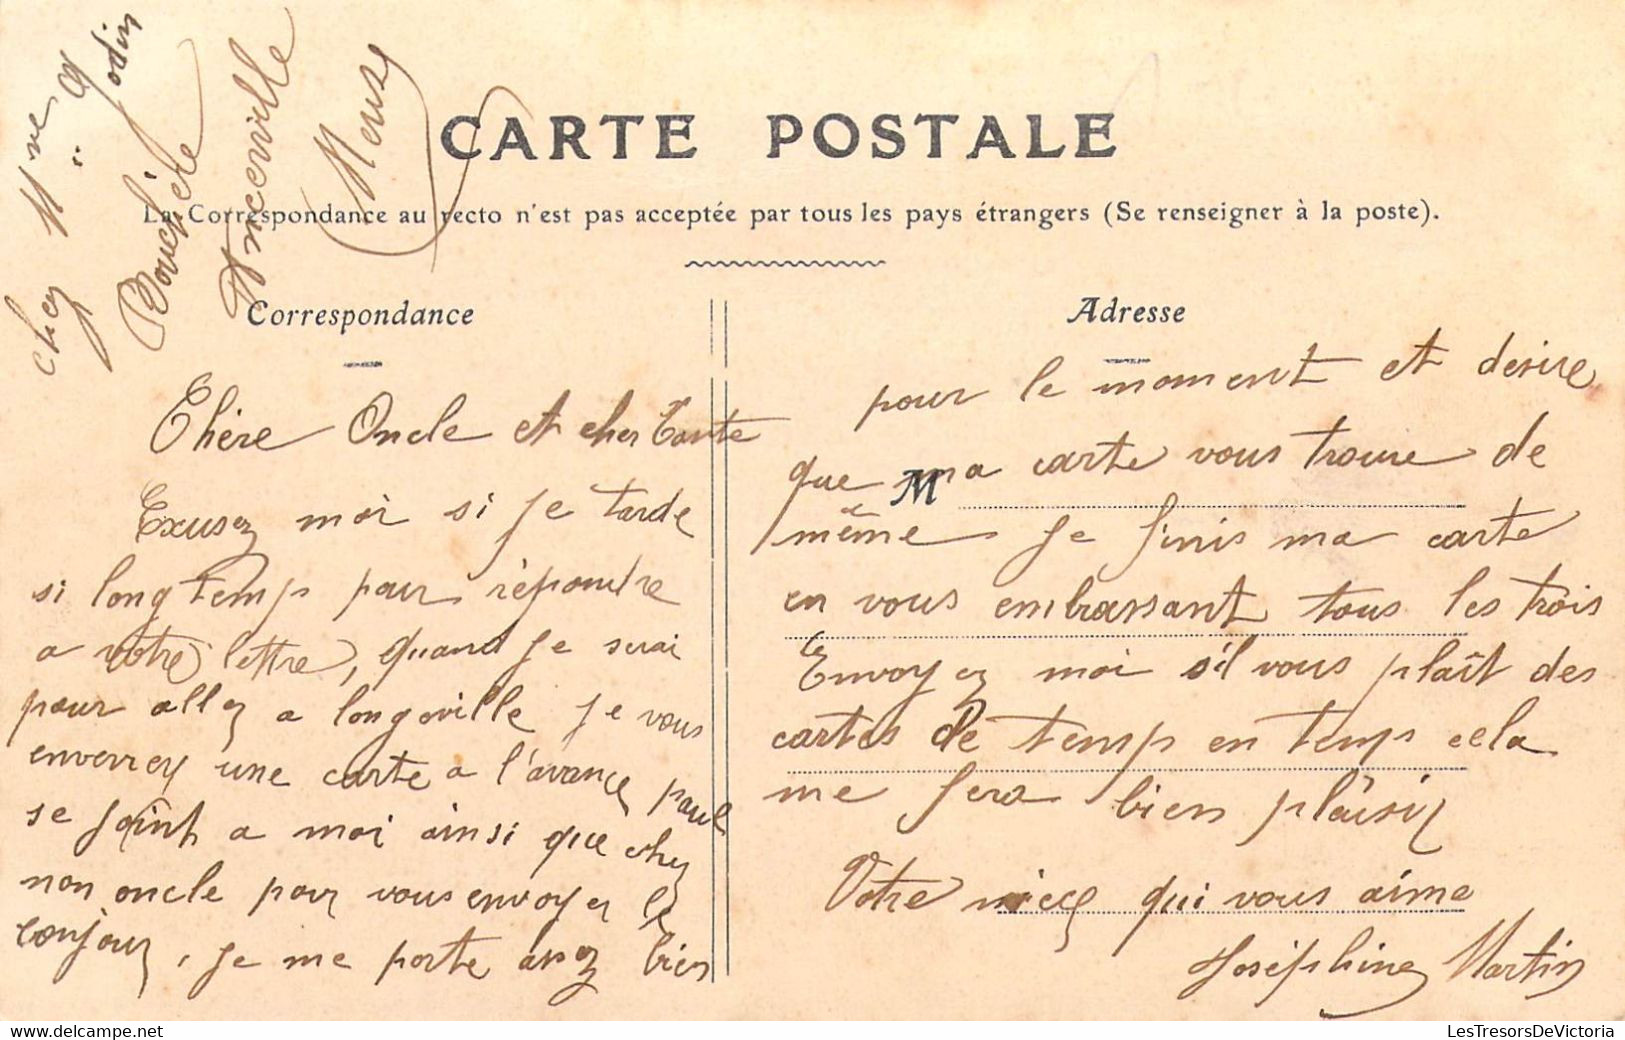 chez Mme Vve Godin
Bouchère
Ancerville
Meuse
CARTE POSTALE
La Correspondance au recto n'est pas acceptée par tous les pays étrangers (Se renseigner à la poste).
Correspondance
Chère Oncle et cher Tante
Exusez moi si je tarde
si longtemps pour répondre
a votre lettre, quand je serai
pour allez a longeville je vous
enverrez une carte a l'avance paul
se joint a moi ainsi que chez
non oncle pour vous envoyer le
bonjour, je me porte assez bien
Adresse
M
pour le moment et desire
que ma carte vous trouve de
même je finis ma carte
en vous embrassant tous les trois
Envoyez moi s'il vous plaît des
cartes de temps en temps cela
me fera bien plaisir
Votre niece qui vous aime
Joséphine Martin
LesTresorsDeVictoria